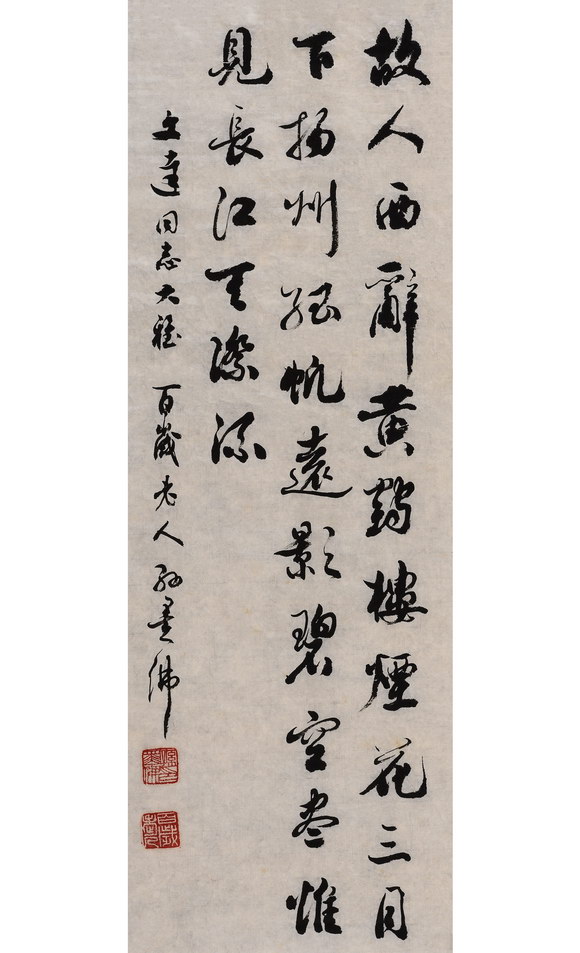 故人西辭黃鶴樓煙花三月
下揚州孤帆遠影碧空尽惟
見長江天際流
文達同志大雅 百歲老人孫墨佛
百歲老人